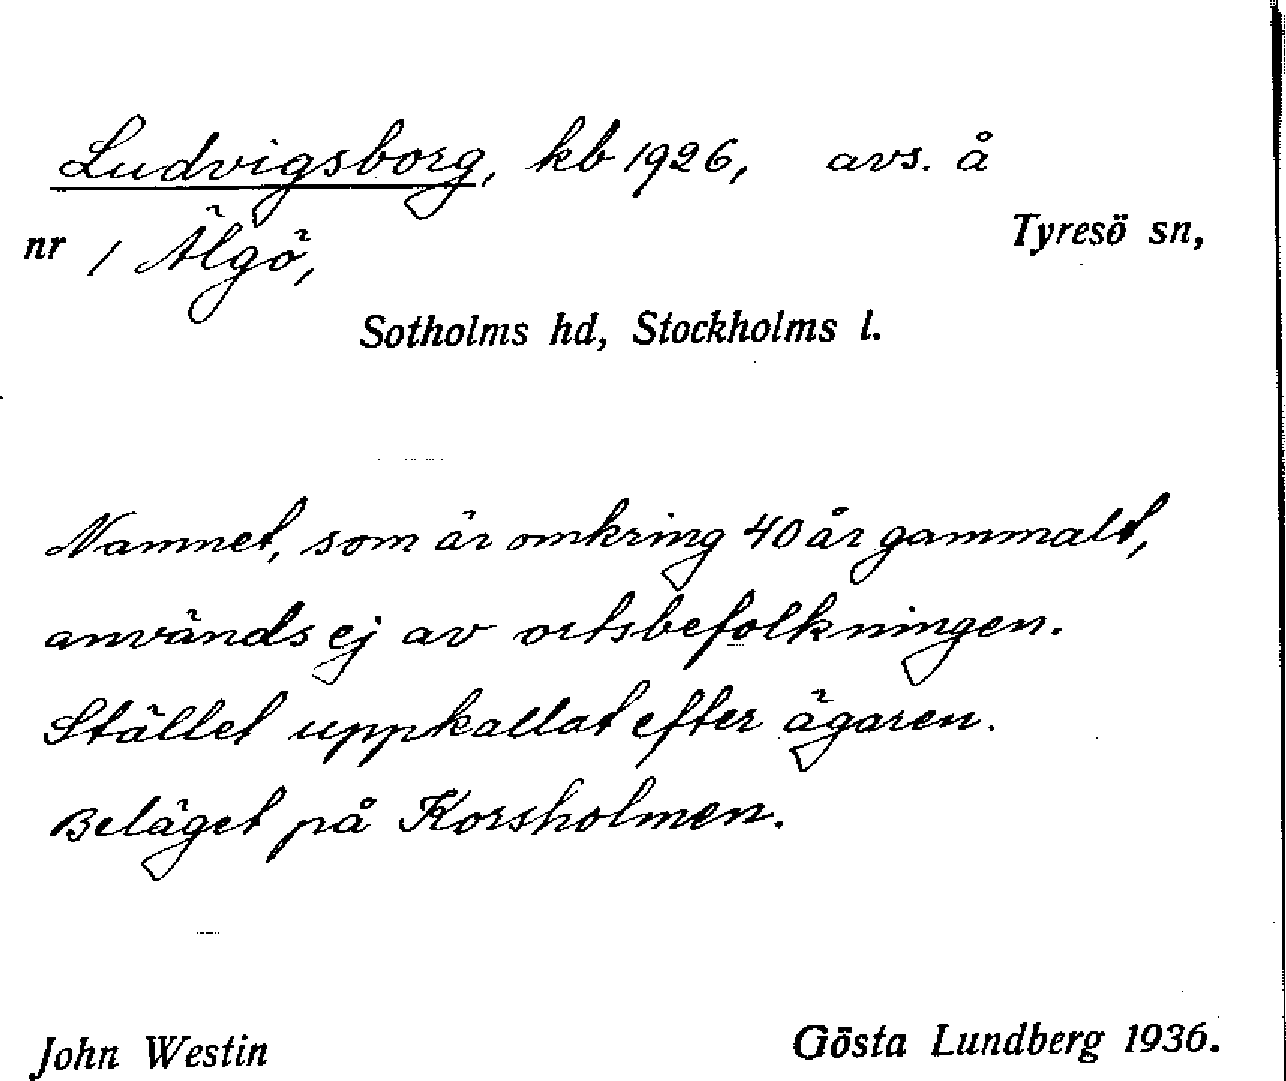 Ludvigsborg, kb 1926, avs. å
nr 1 Älgö,
Tyresö sn,
Sotholms hd, Stockholms l.
Namnet, som är omkring 40 år gammalt,
används ej av ortsbefolkningen.
Stället uppkallat efter ägaren.
Beläget på Korsholmen.
John Westin
Gösta Lundberg 1936.